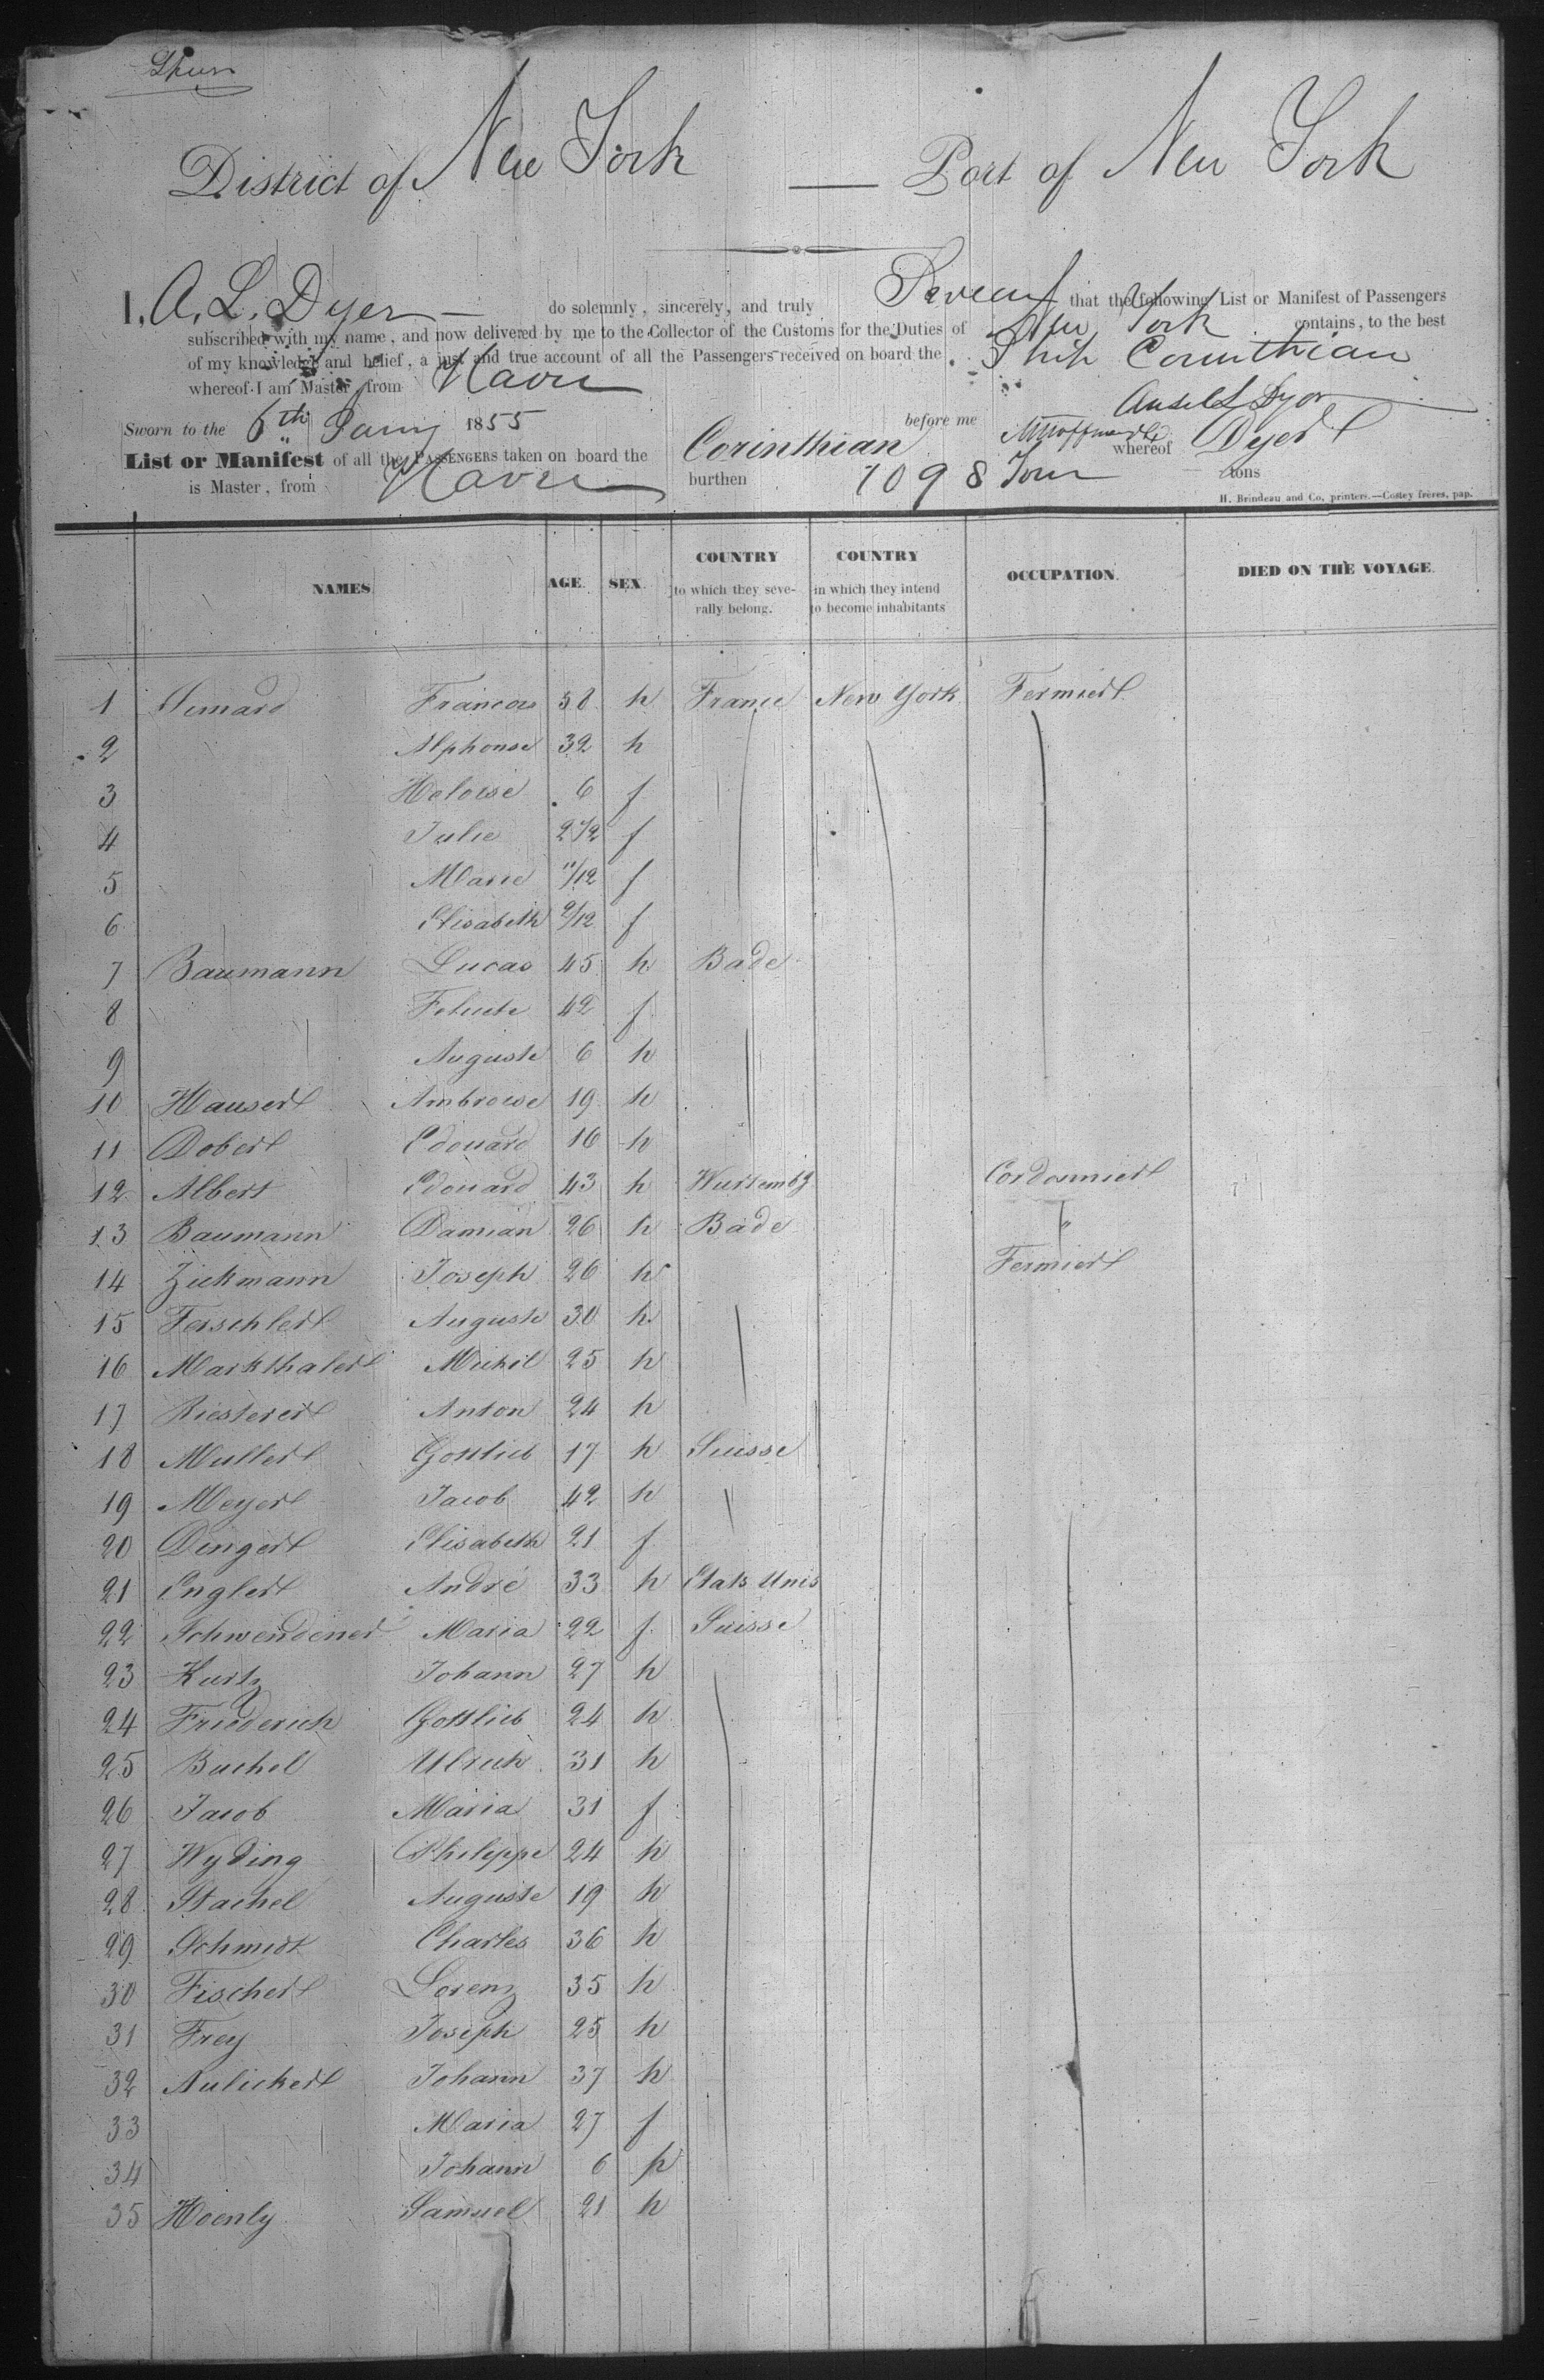 District of New York — Port of New York
I, A. L. Dyer do solemnly, sincerely, and truly that the following List or Manifest of Passengers
subscribed with my name, and now delivered by me to the Collector of the Customs for the Duties of New York contains, to the best
of my knowledge and belief, a just and true account of all the Passengers received on board the Ship Corinthian
whereof I am Master from Havre
Ansel L Dyer
Sworn to the 6th Jany 1855 before me
List or Manifest of all the PASSENGERS taken on board the Corinthian whereof Dyer
is Master, from Havre burthen 1098 Tons tons
H. Brindeau and Co, printers.—Costey frères, pap.
NAMES AGE. SEX. COUNTRY to which they severally belong. COUNTRY in which they intend to become inhabitants OCCUPATION. DIED ON THE VOYAGE.
1 Francois 38 h France New York Fermier
2 Alphonse 32 h
3 Heloise 6 f
4 Julie 2 1/2 f
5 Marie 11/12 f
6 Elisabeth 9/12 f
7 Baumann Lucas 45 h Bade
8 Felicite 42 f
9 Auguste 6 h
10 Hauser Ambroise 19 h
11 Dober Edouard 16 h
12 Albert Edouard 43 h Wurtembg Cordonnier
13 Baumann Damian 26 h Bade "
14 Zickmann Joseph 26 h Fermier
15 Ferschler Auguste 30 h
16 Markthaler Michel 25 h
17 Riesterer Anton 24 h
18 Muller Gottlieb 17 h Suisse
19 Meyer Jacob 42 h
20 Dinger Elisabeth 21 f
21 Engler André 33 h Etats Unis
22 Schwendener Maria 22 f Suisse
23 Kurtz Johann 27 h
24 Friederich Gottlieb 24 h
25 Buchel Ulrich 31 h
26 Jacob Maria 31 f
27 Wyding Philippe 24 h
28 Stachel Auguste 19 h
29 Schmidt Charles 36 h
30 Fischer Lorenz 35 h
31 Frey Joseph 25 h
32 Aulicker Johann 37 h
33 Maria 27 f
34 Johann 6 h
35 Hoenly Samuel 21 h